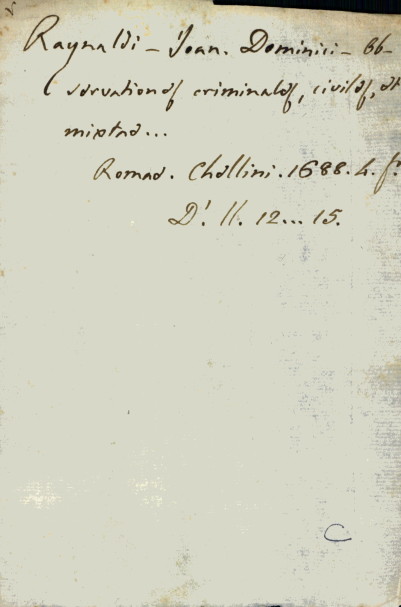 Raynaldi - Joan. Dominici - Ob-
servationes criminales, civiles, et
mixtae...
Romae. Chellini. 1688. 4. f.
D'. II. 12... 15.
C